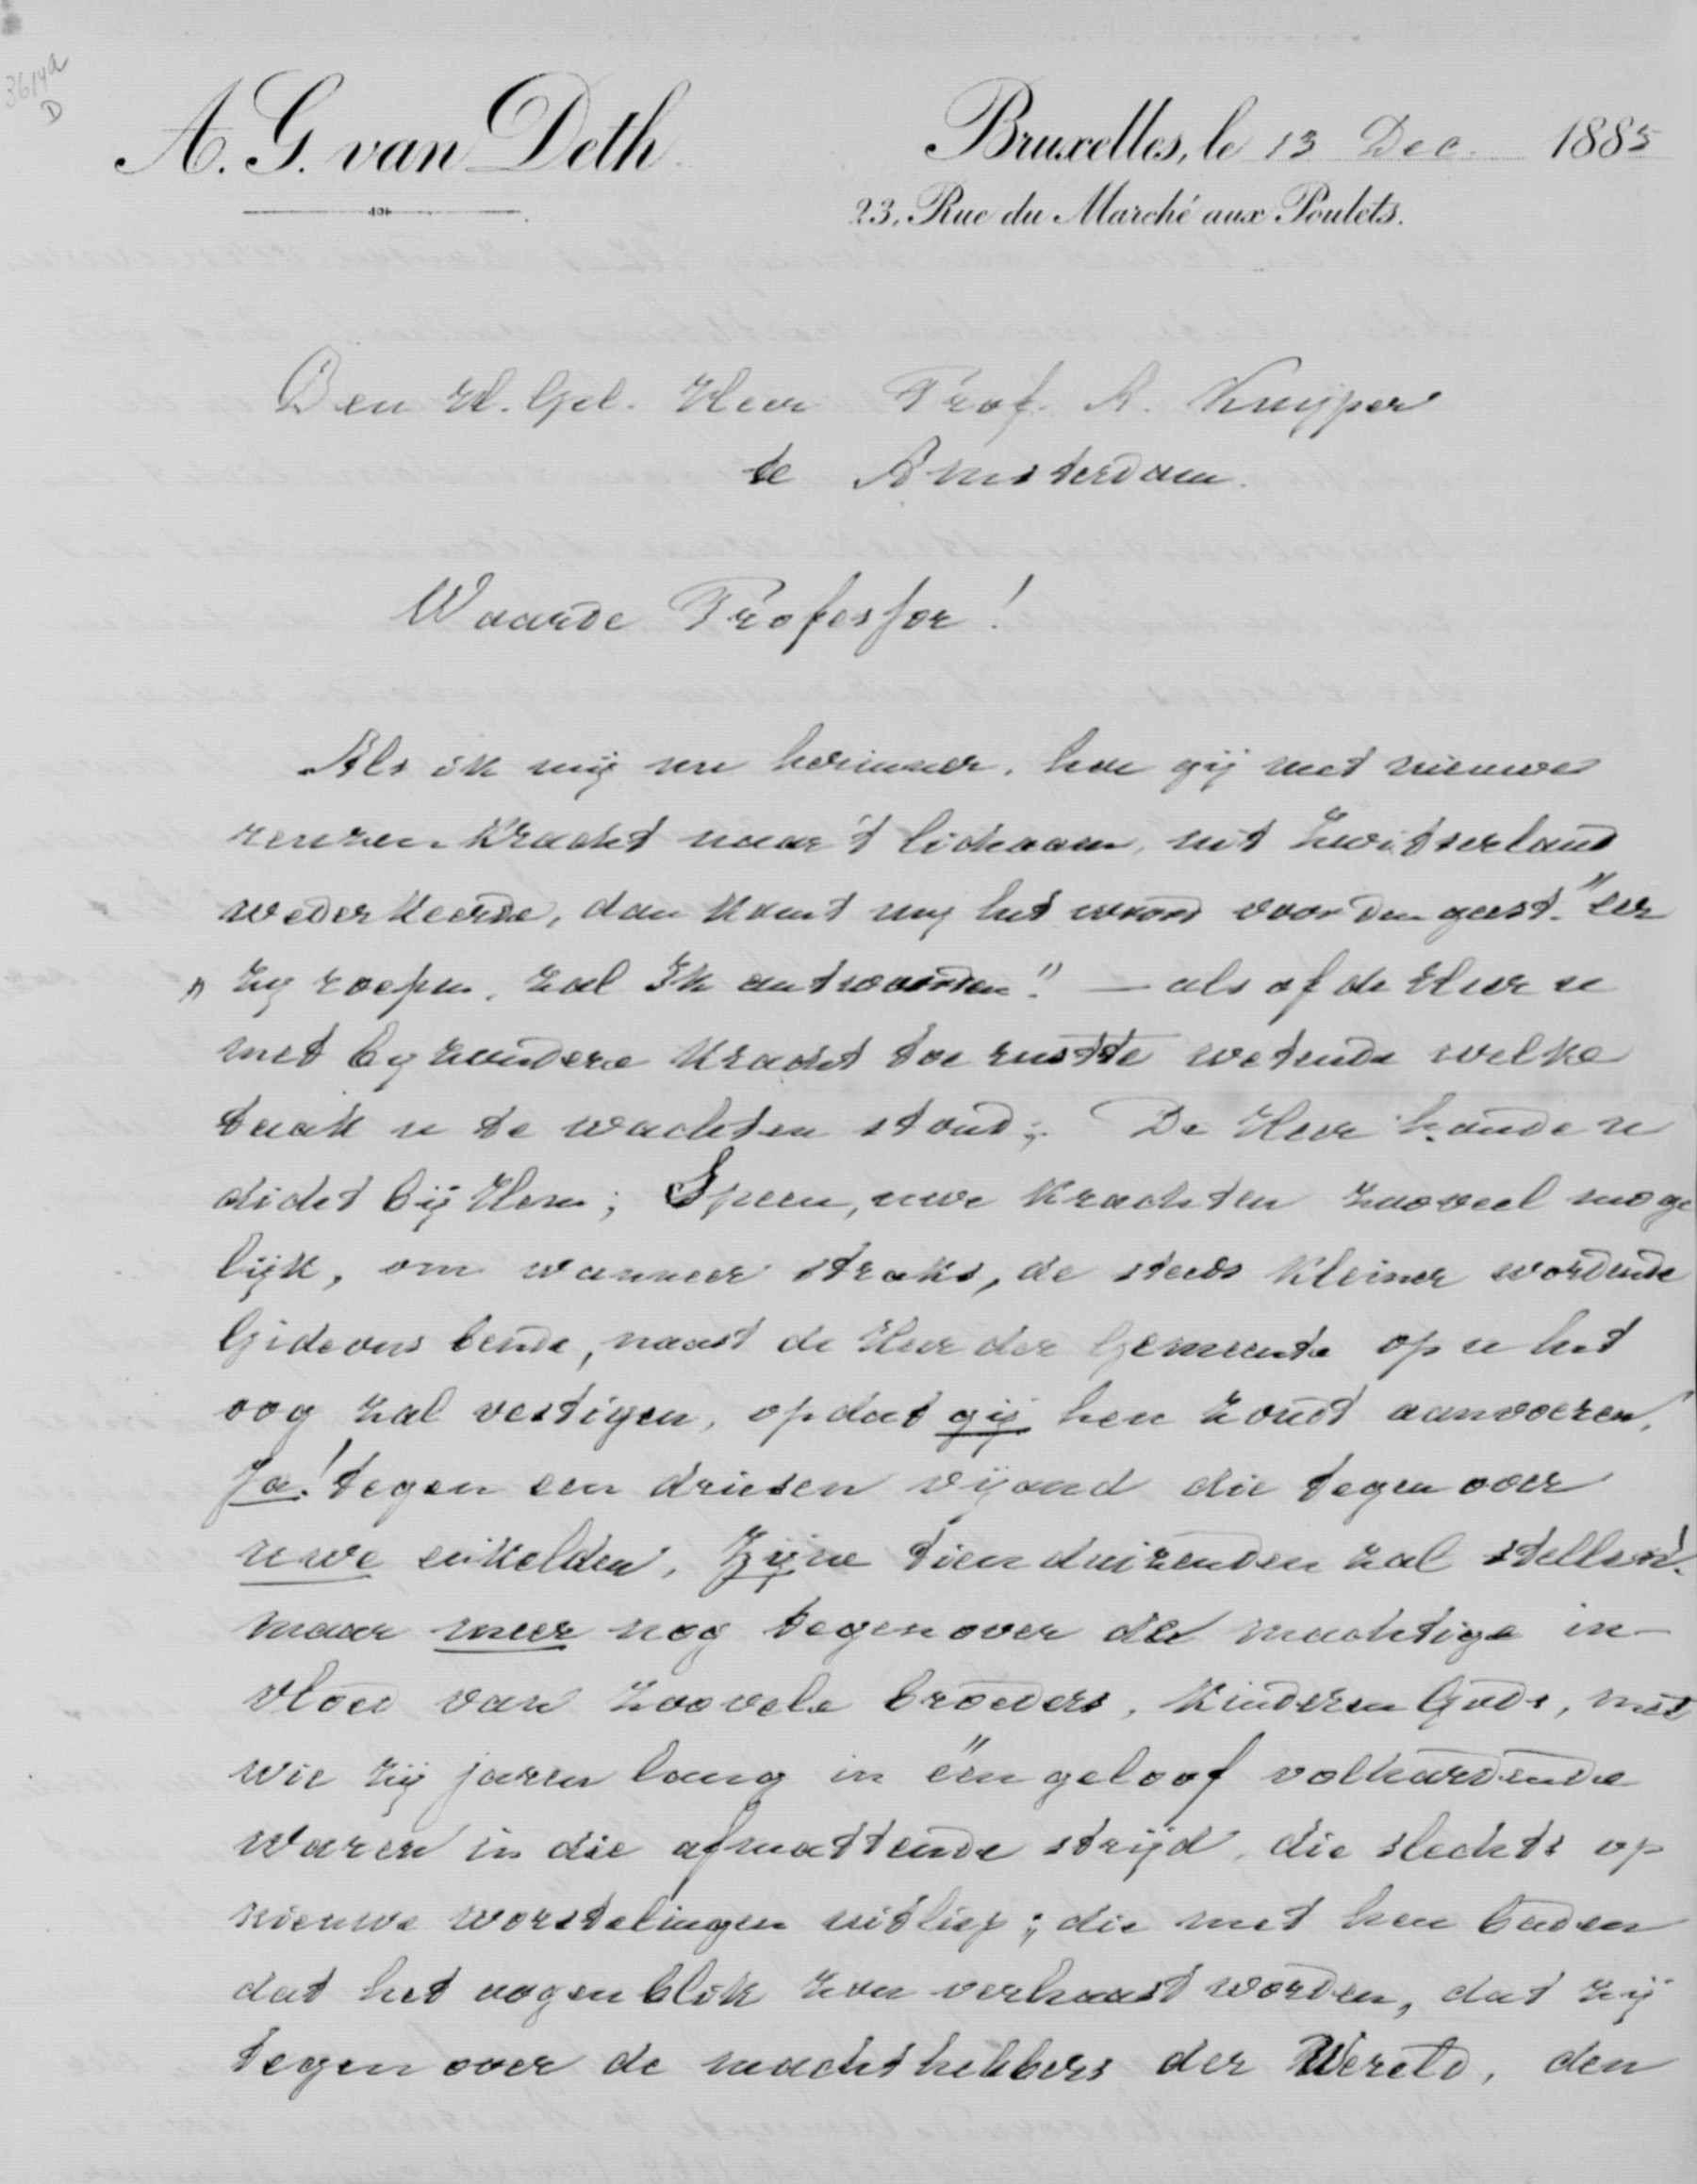 3614a
D
A. G. van Deth
Bruxelles, le 13 Dec. 1885
23, Rue du Marché aux Poulets.
Den H. Gel. Heer Prof. A. Kuijper
te Amsterdam.
Waarde Professor!
Als ik mij nu herinner, hoe gij met nieuwe
reuzen kracht naar 't lichaam, uit Zwitserland
wederkeerde, dan komt mij het woord voor den geest. "eer
"zij roepen, zal Ik antwoorden." — als of de Heer u
met byzondere kracht toe rustte wetende welke
taak u te wachten stond; De Heer houde u
dicht bij Hem; Speen, uwe krachten zooveel moge
lijk, om wanneer straks, de steeds kleiner wordende
Gideons bende, naast de Heer der Gemeente op u het
oog zal vestigen, opdat gij hen zoudt aanvoeren,
Ja! tegen een driesten vijand die tegenover
uwe enkelden, Zijne tienduizenden zal stellen.
maar meer nog tegenover de machtige in-
vloed van zoovele broeders, kinderen Gods, met
wie zij jaren lang in één geloof volhardende
waren in die afmattende strijd, die slechts op
nieuwe worstelingen uitliep; die met hen baden
dat het oogenblik zou verhaast worden, dat zij
tegenover de machthebbers der Wereld, den